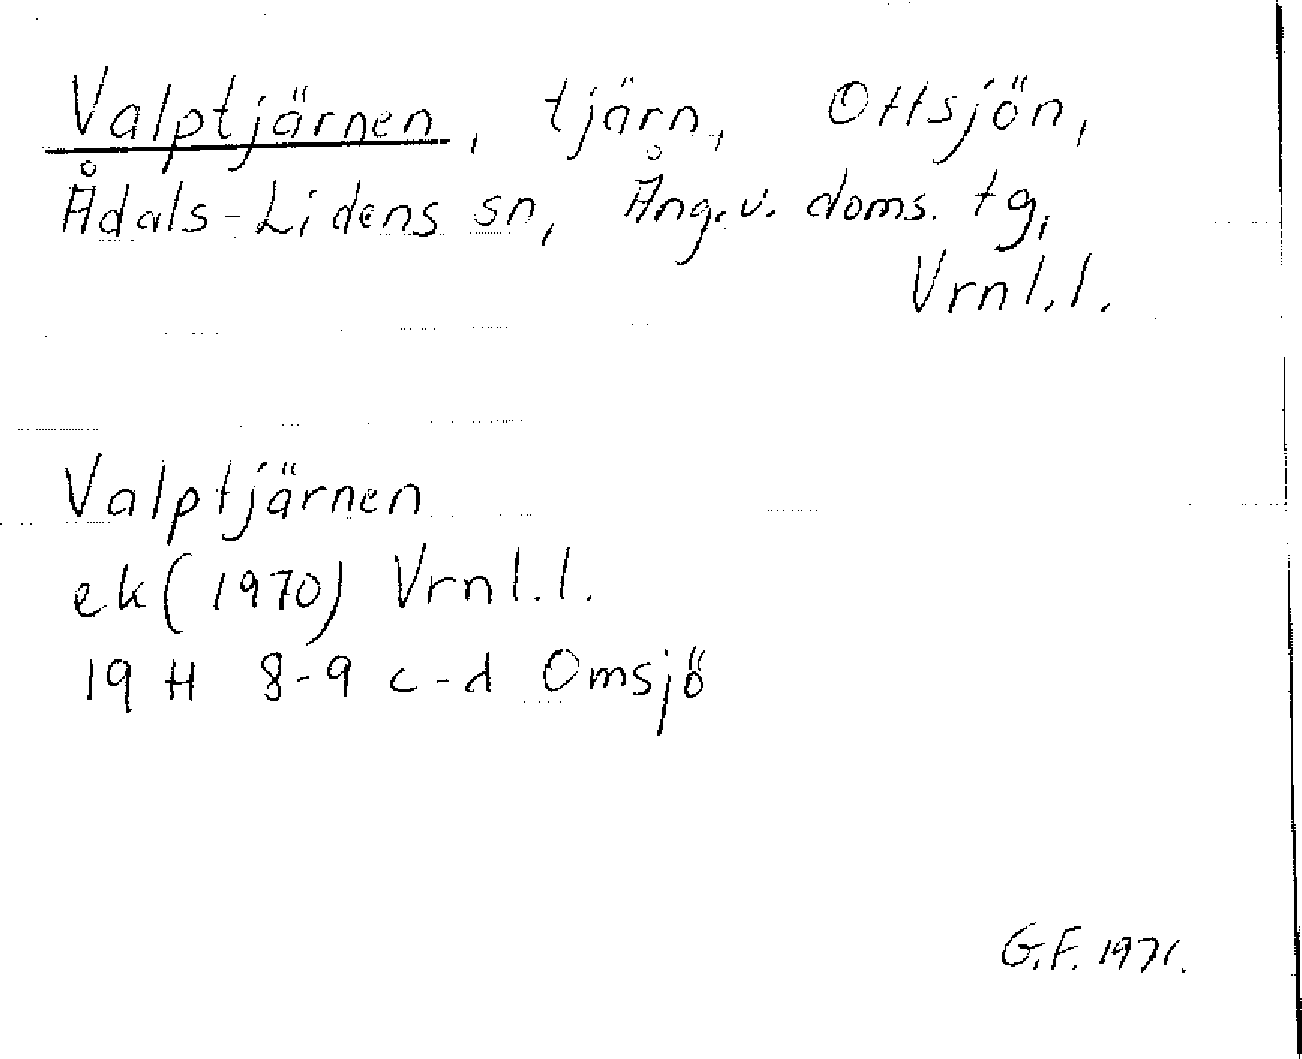 Valptjärnen, tjärn, Ottsjön,
Ådals-Lidens sn, Ång.v. doms. tg,
Vrnl.l.
Valptjärnen
ek(1970) Vrnl.l.
19 H 8-9 c-d Omsjö
G.F. 1971.